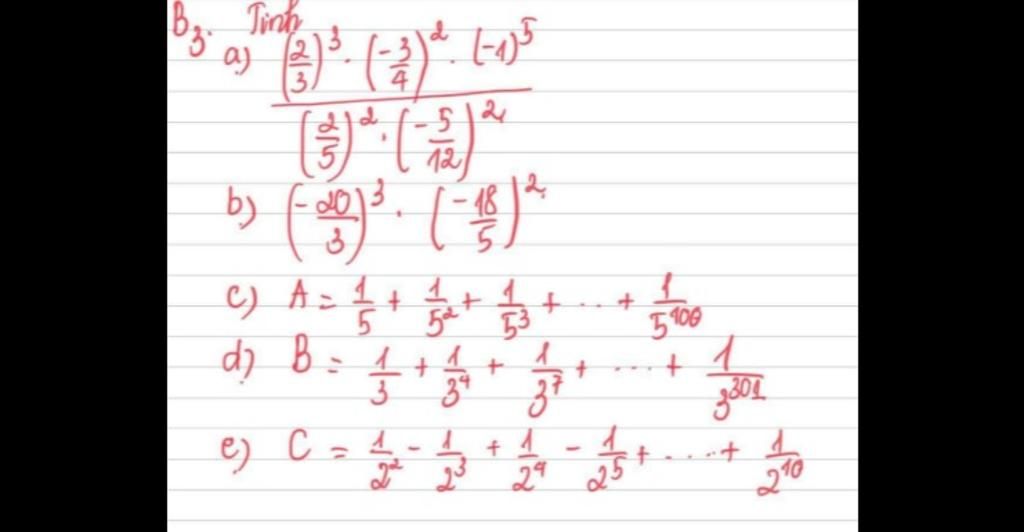 B3. Tính
a) \frac{(\frac{2}{3})^3 . (-\frac{3}{4})^2 . (-1)^5}{(\frac{2}{5})^2 . (-\frac{5}{12})^2}
b) (-\frac{20}{3})^3 . (-\frac{18}{5})^2
c) A = \frac{1}{5} + \frac{1}{5^2} + \frac{1}{5^3} + ... + \frac{1}{5^{100}}
d) B = \frac{1}{3} + \frac{1}{3^4} + \frac{1}{3^7} + .... + \frac{1}{3^{301}}
e) C = \frac{1}{2^2} - \frac{1}{2^3} + \frac{1}{2^4} - \frac{1}{2^5} + ..... + \frac{1}{2^{10}}